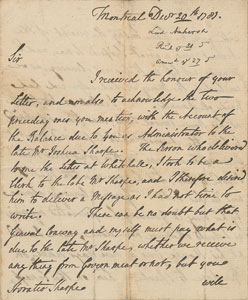 Montreal Decr 20th 1781.
Lord Amherst
Sir
I received the honour of your
Letter, and now also to acknowledge the two
preceding ones you mention, with the Account of
the Balance due to you as Administrator to the
late Mr Joshua Sharpe. The Person who delivered
to me the Letter at Whitehall, I took to be a
Clerk to the late Mr Sharpe, and I therefore desired
him to deliver a Message as I had not time to
write. There can be no doubt but that
General Conway and myself must pay what is
due to the late Mr Sharpe, whether we receive
any thing from Government or not, but you
will
Horatio Sharpe